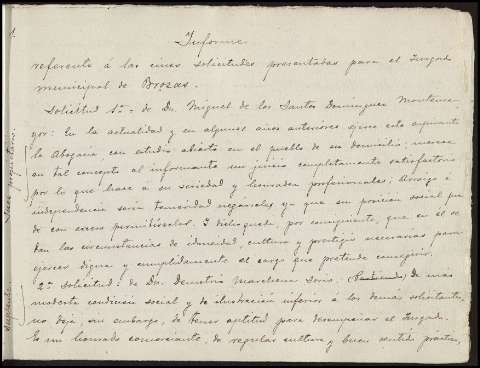 1
Informe
referente á las cinco solicitudes presentadas para el Juzgado
municipal de Brozas.
Solicitud 1ª = de Dn. Miguel de los Santos Dominguez Montema-
yor: En la actualidad y en algunos años anteriores ejerce este aspirante
la Abogacia, con estudio abierto en el pueblo de su domicilio; merece
en tal concepto al informante un juicio completamente satisfactorio
por lo que hace á su seriedad y honradez profesionales; Arraigo é
independencia seria temeridad negárselos ya que su posicion social pue-
de con exceso permitírselos. Y dicho queda, por consiguiente, que en él se
dan las circunstancias de idoneidad, cultura y prestigio necesarias para
ejercer digna y cumplidamente el cargo que pretende conseguir.
2ª Solicitud: de Dn. Demetrio de mas
modesta condicion social y de ilustracion inferior á los demás solicitantes,
no deja, sin embargo, de tener aptitud para desempeñar el Juzgado.
Es un honrado comerciante, de regular cultura y buen sentido práctico,
propietario